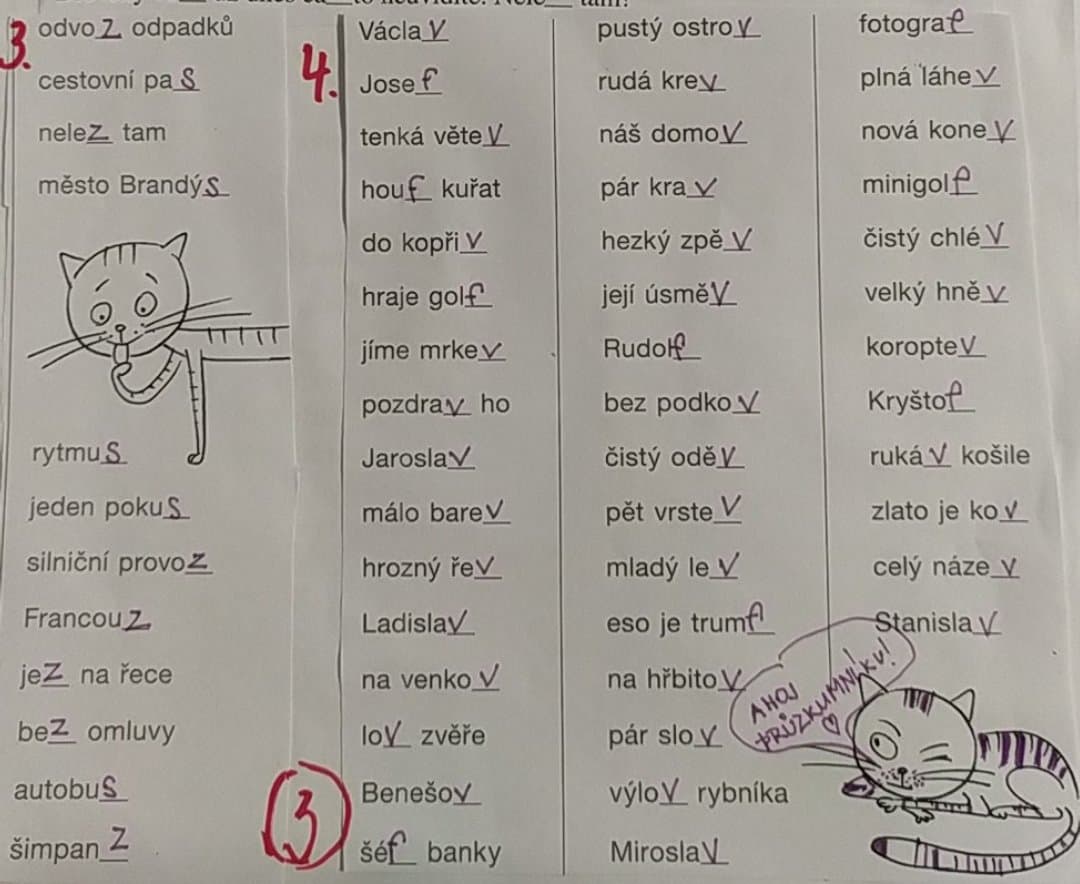 3.
odvoz odpadků
cestovní pas
nelez tam
město Brandýs
rytmus
jeden pokus
silniční provoz
Francouz
jez na řece
bez omluvy
autobus
šimpanz
4.
Václav
Josef
tenká větev
houf kuřat
do kopřiv
hraje golf
jíme mrkev
pozdrav ho
Jaroslav
málo barev
hrozný řev
Ladislav
na venkov
lov zvěře
Benešov
šéf banky
3
pustý ostrov
rudá krev
náš domov
pár krav
hezký zpěv
její úsměv
Rudolf
bez podkov
čistý oděv
pět vrstev
mladý lev
eso je trumf
na hřbitov
pár slov
výlov rybníka
Miroslav
fotograf
plná láhev
nová konev
minigolf
čistý chlév
velký hněv
koroptev
Kryštof
rukáv košile
zlato je kov
celý název
Stanislav
AHOJ
PRŮZKUMNÍKU!